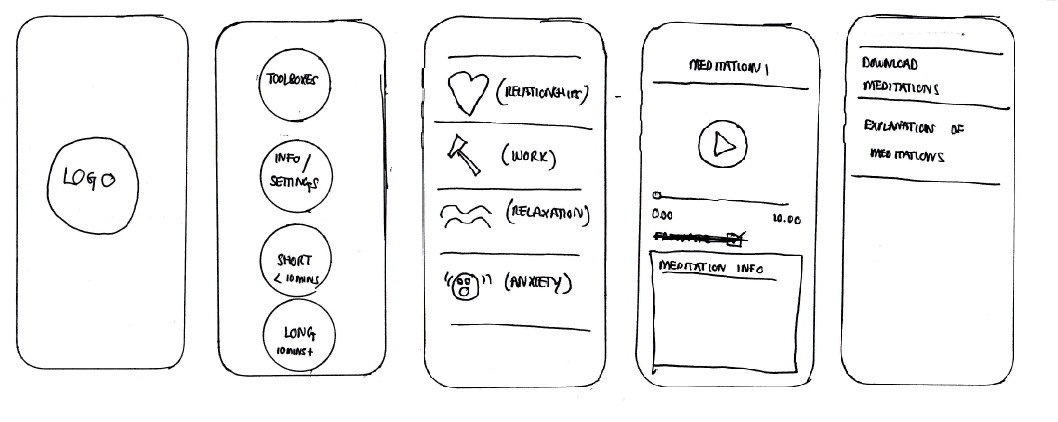 LOGO
TOOLBOXES
INFO /
SETTINGS
SHORT
< 10 MINS
LONG
10 MINS +
(RELATIONSHIPS)
(WORK)
(RELAXATION)
(ANXIETY)
MEDITATION 1
0.00 10.00
MEDITATION INFO
DOWNLOAD
MEDITATIONS
EXPLANATION OF
MEDITATIONS